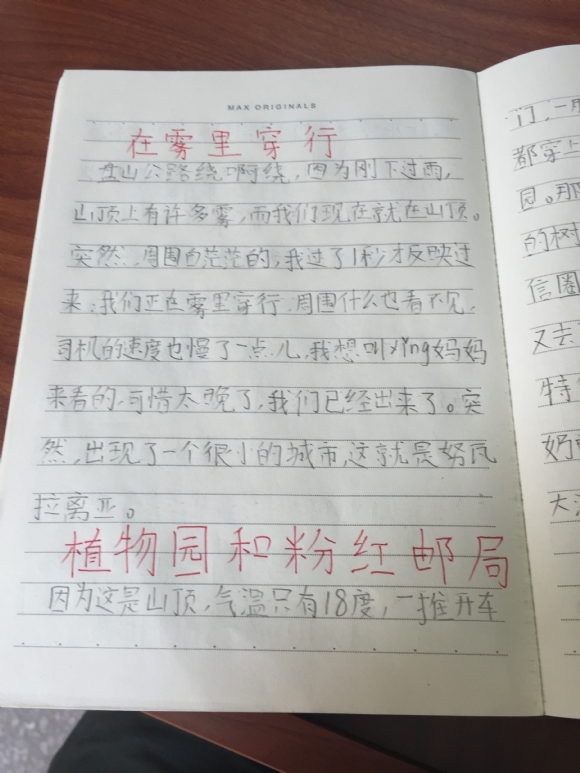 MAX ORIGINALS
在雾里穿行
盘山公路绕啊绕,因为刚下过雨,
山顶上有许多雾,而我们现在就在山顶。
突然,周围白茫茫的,我过了1秒才反映过
来:我们正在雾里穿行,周围什么也看不见,
司机的速度也慢了一点儿,我想叫ying妈妈
来看的,可惜太晚了,我们已经出来了。突
然,出现了一个很小的城市,这就是努瓦
拉离亚。
植物园和粉红邮局
因为这是山顶,气温只有18度,一推开车
门,一
都穿上
园。那
的树
信圈
又去
特
奶
大